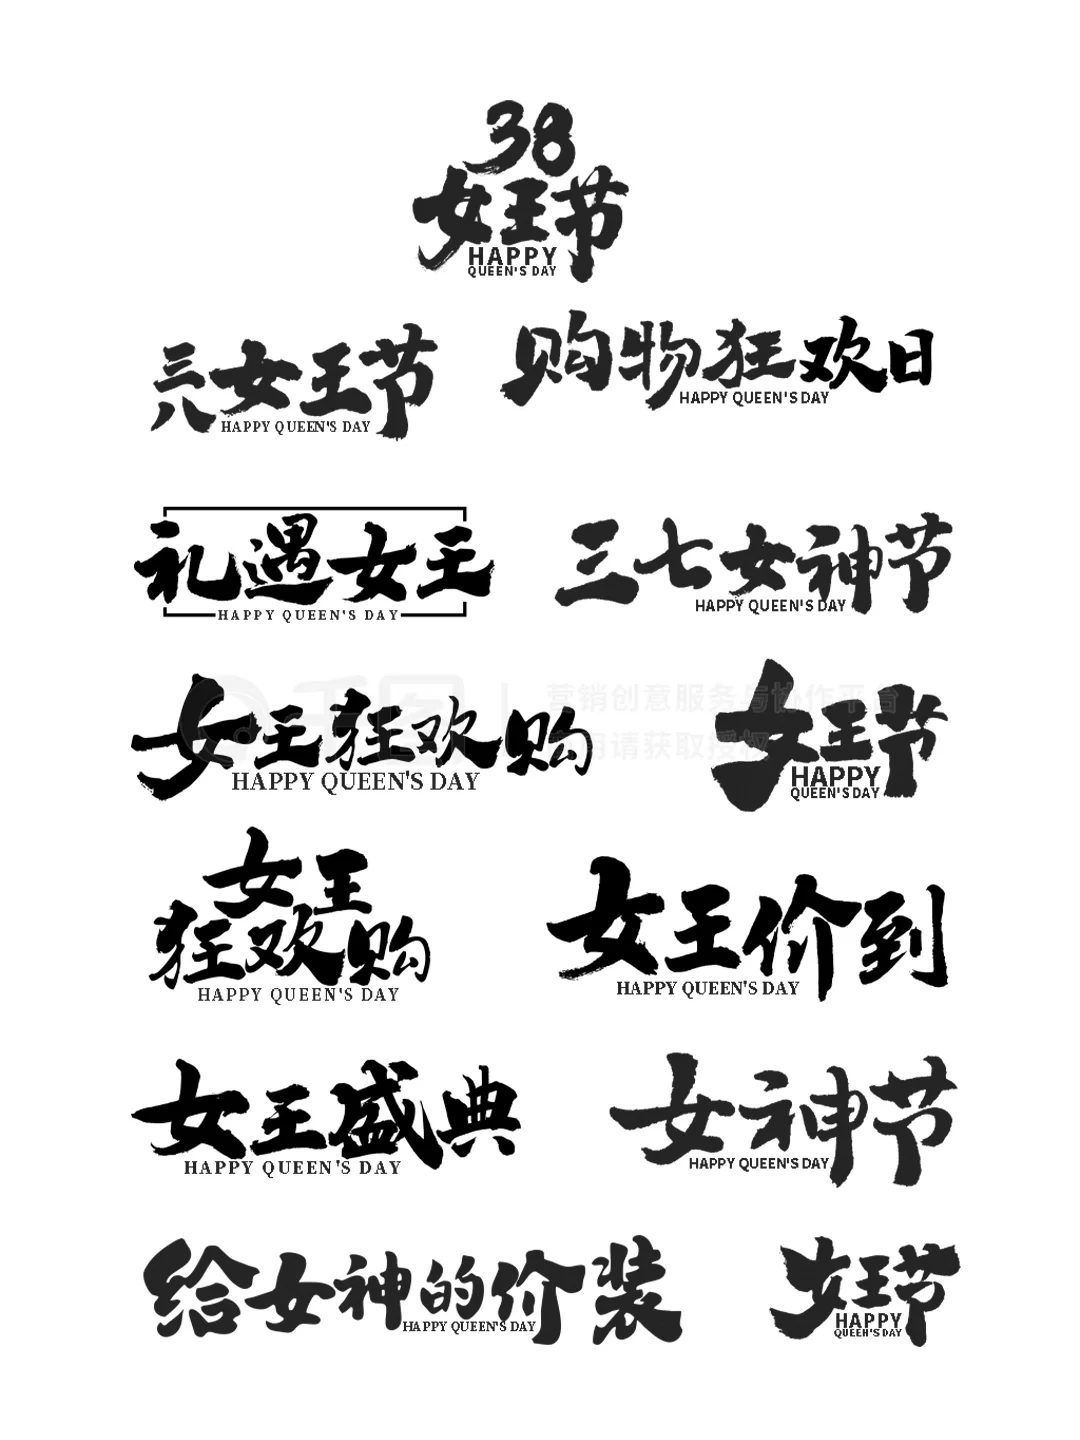 38
女王节
HAPPY
QUEEN'S DAY
三八女王节
HAPPY QUEEN'S DAY
购物狂欢日
HAPPY QUEEN'S DAY
礼遇女王
HAPPY QUEEN'S DAY
三七女神节
HAPPY QUEEN'S DAY
千图
营销创意服务与协作平台
请获取授权
女王狂欢购
HAPPY QUEEN'S DAY
女王节
HAPPY
QUEEN'S DAY
女王
狂欢购
HAPPY QUEEN'S DAY
女王价到
HAPPY QUEEN'S DAY
女王盛典
HAPPY QUEEN'S DAY
女神节
HAPPY QUEEN'S DAY
给女神的价装
HAPPY QUEEN'S DAY
女王节
HAPPY
QUEEN'S DAY